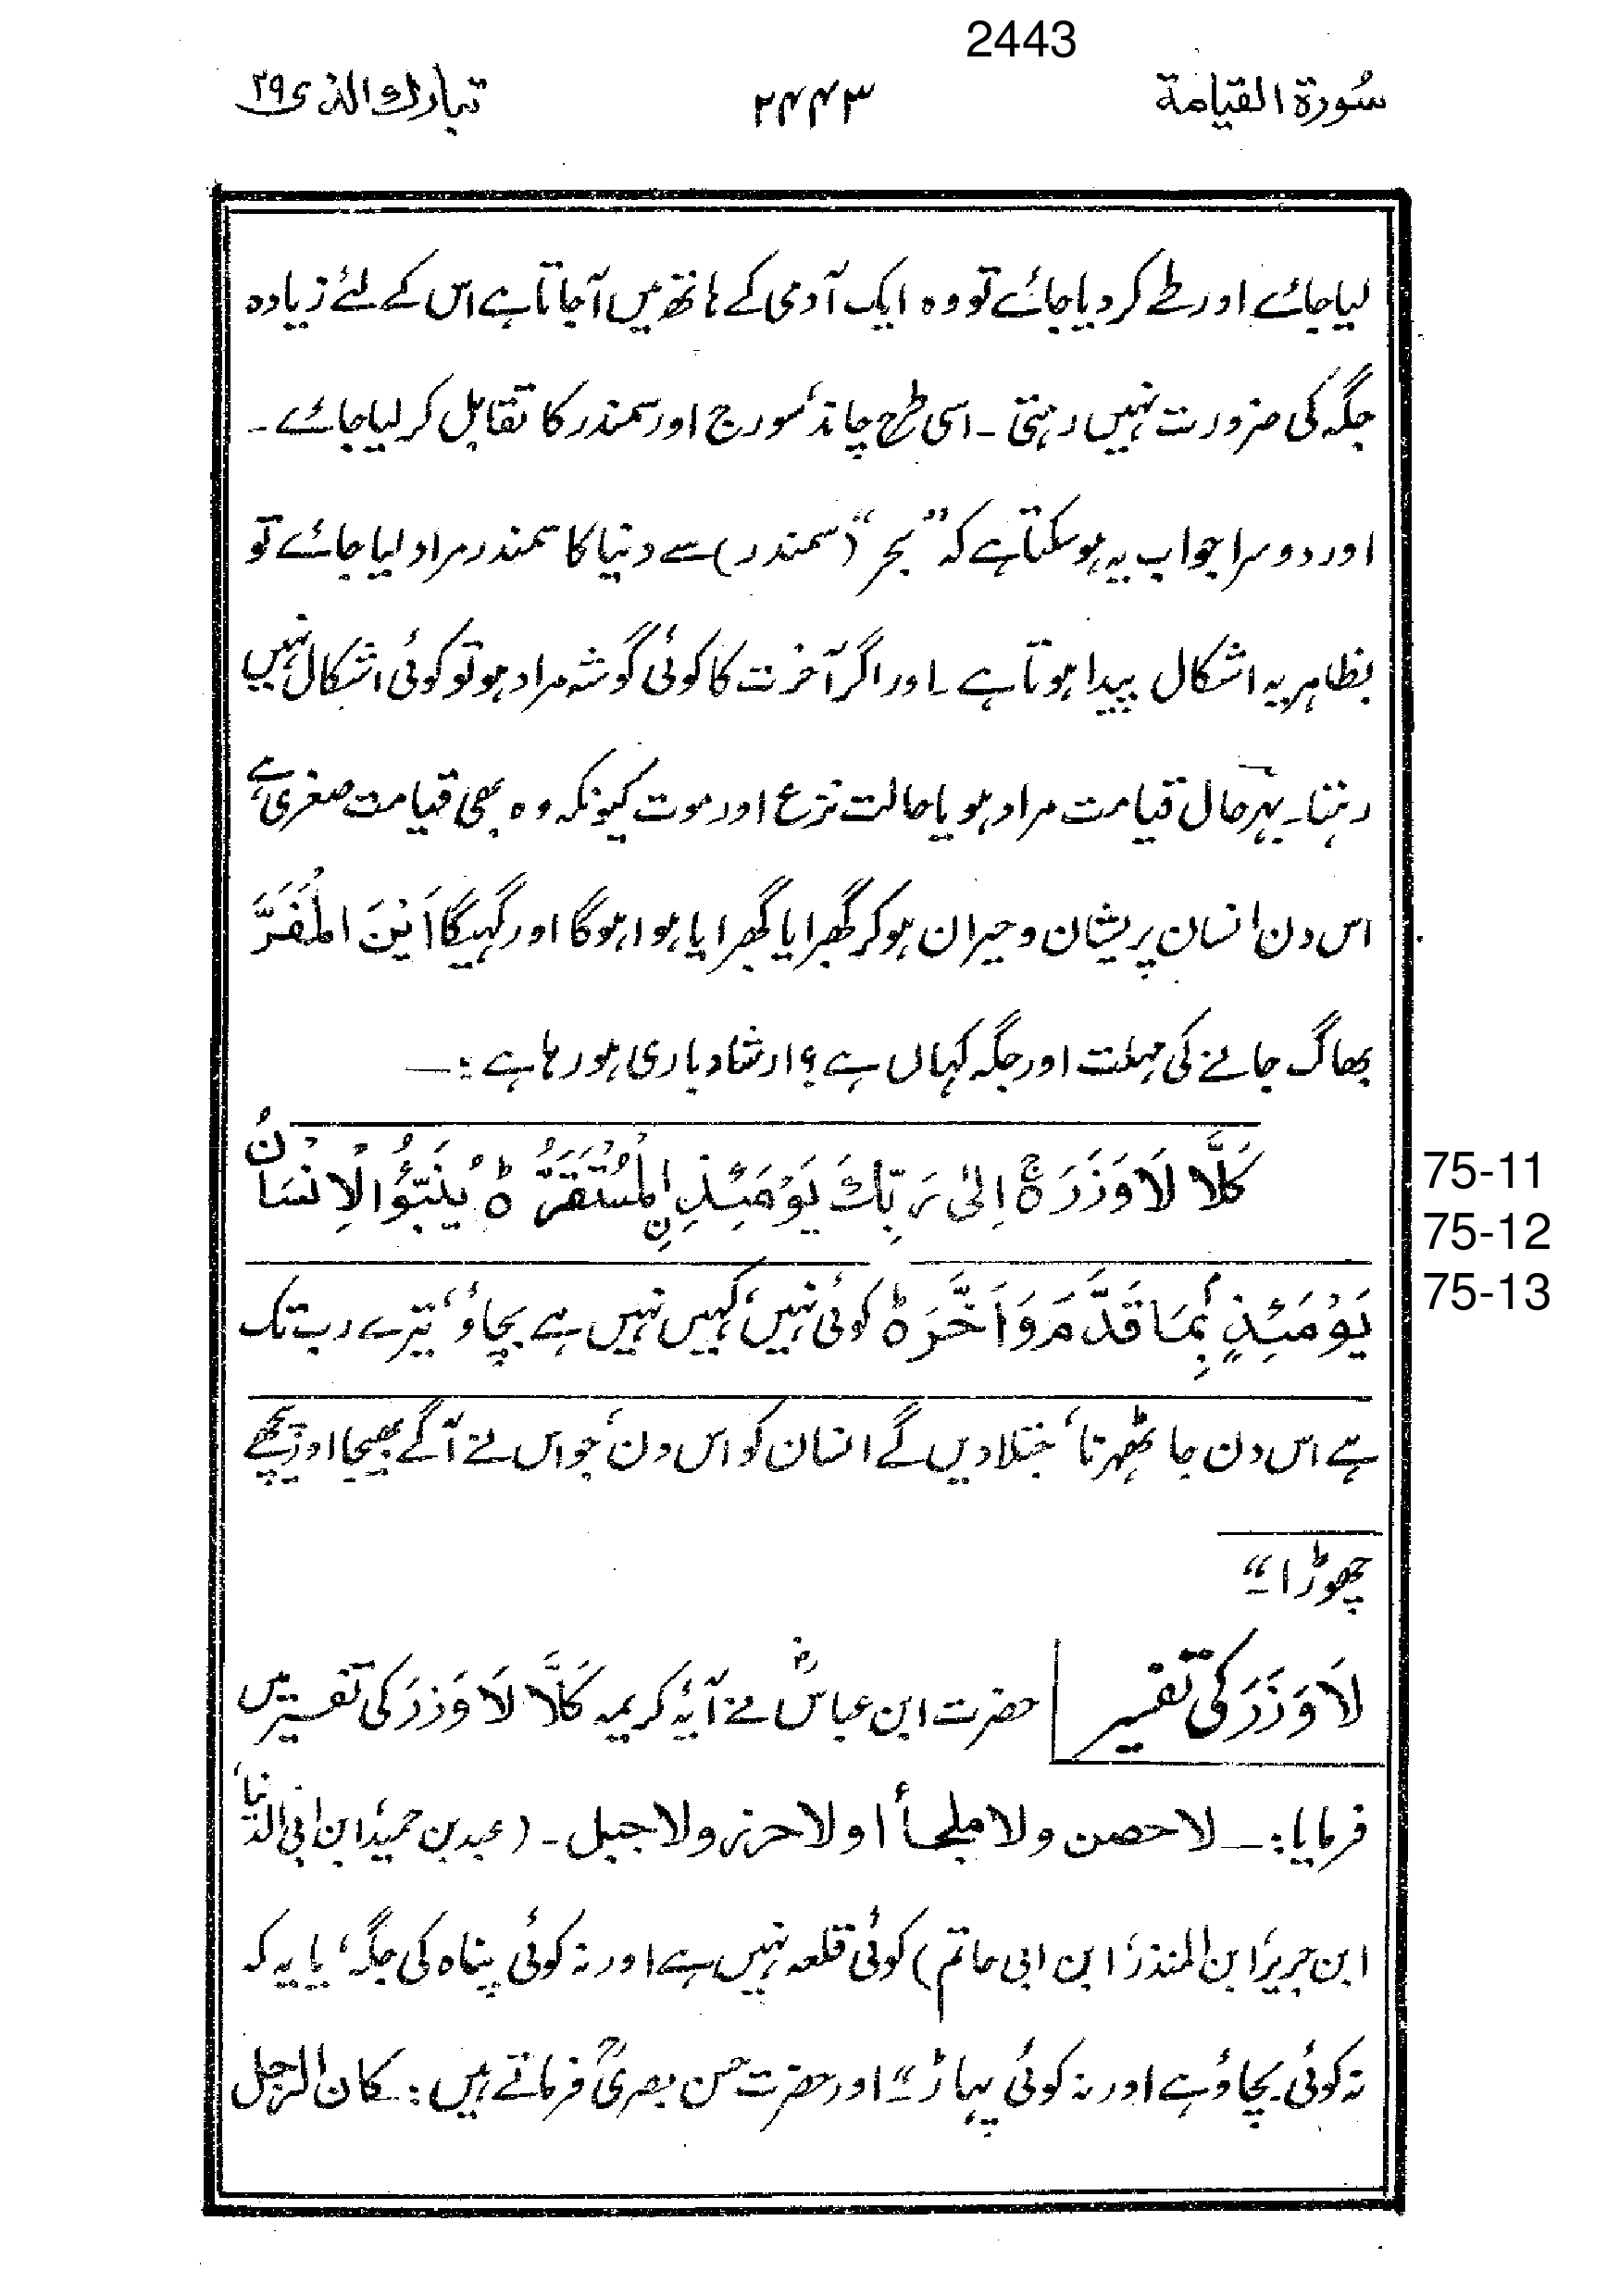 2443
سُورة القيامة ۲۴۴۳ تبارك الذی ۲۹
لیا جائے اور طے کر دیا جائے تو وہ ایک آدمی کے ہاتھ میں آجاتا ہے اس کے لئے زیادہ
جگہ کی ضرورت نہیں رہتی ۔ اسی طرح چاند، سورج اور سمندر کا تقابل کر لیا جائے ۔
اور دوسرا جواب یہ ہو سکتا ہے کہ "بحر" (سمندر) سے دنیا کا سمندر مراد لیا جائے تو
بظاہر یہ اشکال پیدا ہوتا ہے ۔ اور اگر آخرت کا کوئی گوشہ مراد ہو تو کوئی اشکال نہیں
رہتا۔ بہرحال قیامت مراد ہو یا حالت نزع اور موت کیونکہ وہ بھی قیامت صغریٰ ہے
اس دن انسان پریشان و حیران ہو کر گھبرایا گھبرایا ہوا ہوگا اور کہیگا اَیْنَ الْمَفَرُّ
بھاگ جانے کی مہلت اور جگہ کہاں ہے ؟ ارشاد باری ہو رہا ہے :—
كَلَّا لَا وَزَرَ ۝ اِلٰی رَبِّكَ يَوْمَئِذِ نِ الْمُسْتَقَرُّ ۝ يُنَبَّؤُا الْاِنْسَانُ
75-11
يَوْمَئِذٍ بِمَا قَدَّمَ وَاَخَّرَ ۝ کوئی نہیں، کہیں نہیں ہے بچاؤ، تیرے رب تک
75-12
75-13
ہے اس دن جا ٹھہرنا، جتلا دیں گے انسان کو اس دن، جو اس نے آگے بھیجا اور پیچھے
چھوڑا ۔"
لَا وَزَرَ کی تفسیر حضرت ابن عباسؓ نے آیۂ کریمہ كَلَّا لَا وَزَرَ کی تفسیر میں
فرمایا :— لا حصن ولا ملجأ او لا حرز ولا جبل ۔ (عبد بن حمید، ابن ابی الدنیا،
ابن جریر، ابن المنذر، ابن ابی حاتم) کوئی قلعہ نہیں ہے اور نہ کوئی پناہ کی جگہ، یا یہ کہ
نہ کوئی بچاؤ ہے اور نہ کوئی پہاڑ ۔" اور حضرت حسن بصریؒ فرماتے ہیں : کان الرجل